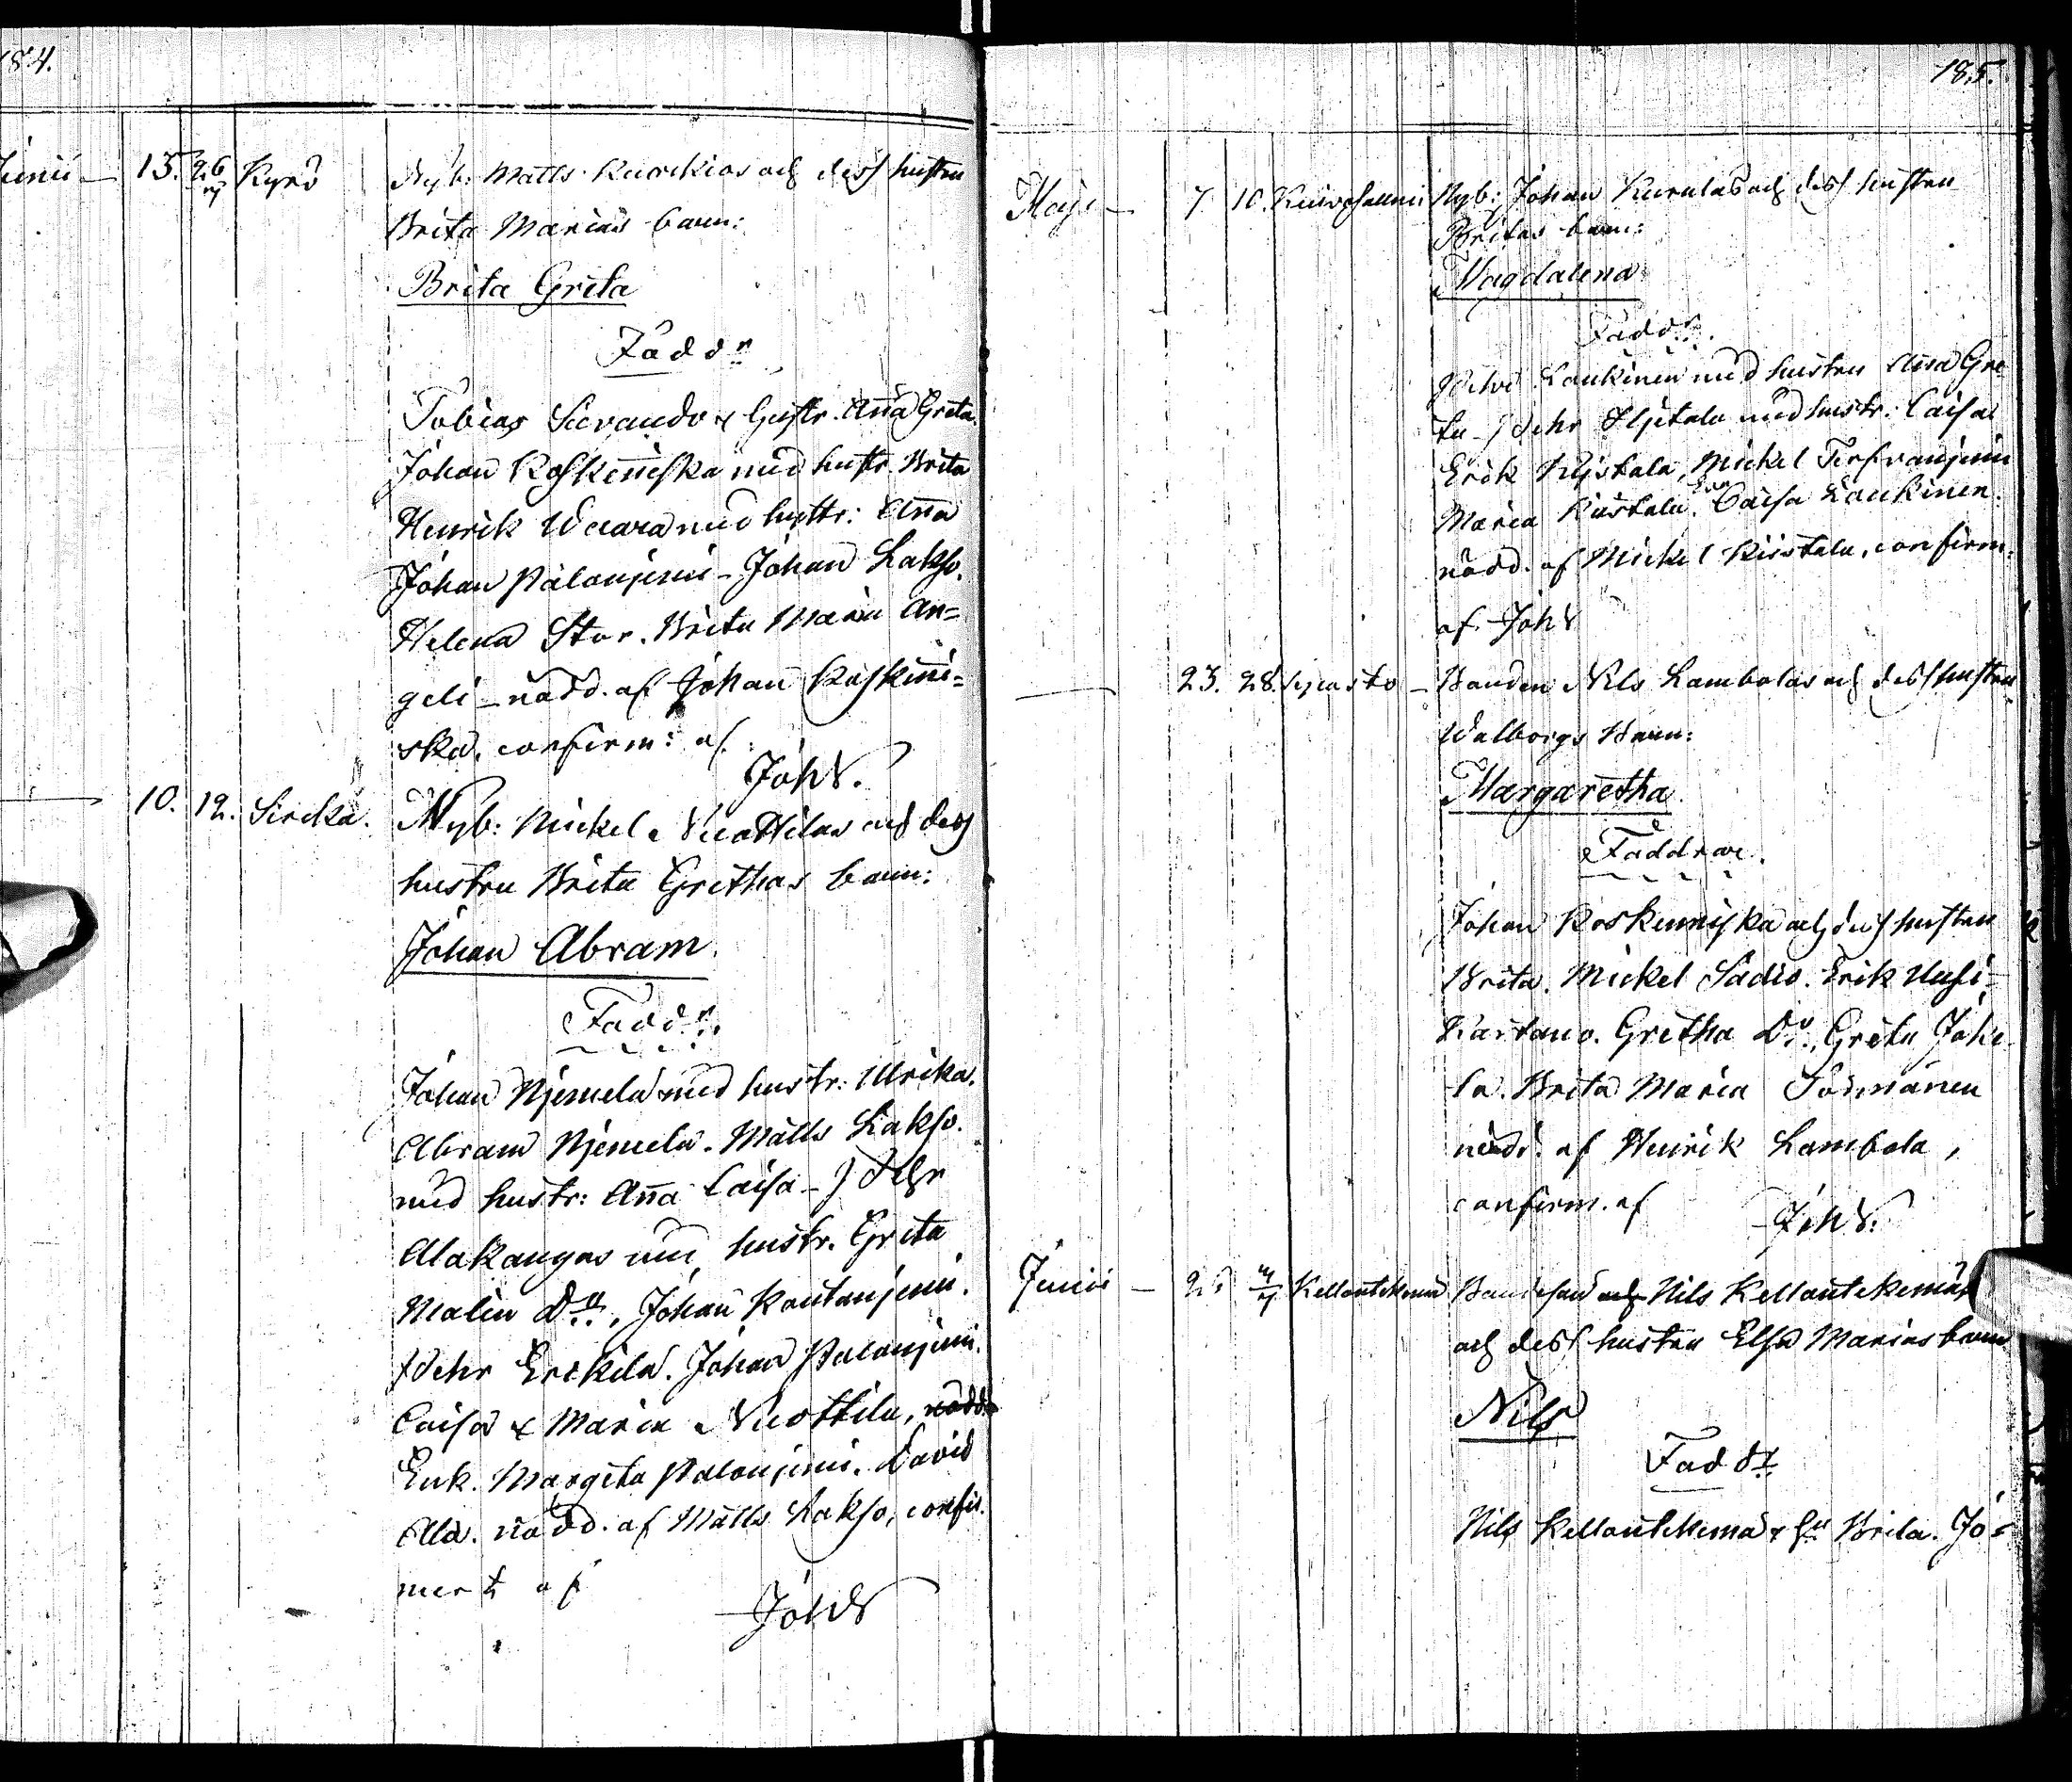 184.
Junii — 15. 26 Kyrö Nyb: Matts Kurkios och dess hustru
Brita Marias barn:
Brita Greta
Faddr
Tobias Sirando & hustr. Anna Greta.
Johan Roskeniska med hustr. Brita
Henrik Waara med hustr: Anna
Johan Palonjemi - Johan Lakso.
Helena Stor. Brita Maria An=
geli - nödd. af Johan Roskeni=
ska, confirm: af
JohW.
— 10. 12. Sirckä. Nyb: Mickel Nuottilas och dess
hustru Brita Grethas barn:
Johan Abram.
Faddr.
Johan Njemela med hustr: Ulrika.
Abram Njemela. Matts Lakso.
med hustr: Anna Caisa - Pehr
Alakangas med hustr. Greta
Malin Do, Johan Rautanjemi.
Pehr Erkila. Johan Palonjemi.
Caisa & Maria Nuottila, nödd
Erik. Margeta Palonjemi. David
Ala. nödd. af Matts Lakso, confir-
mert af
JohW
185.
Maji — 7. 10. Nyb: Johan Kurulas och dess hustru
Britas barn:
Magdalena
Faddr.
Laukinen med hustru Anna Gre
ta - Pehr med hustr. Caisa
Erik Kijstala, Mickel
Maria Kiistala. Caisa Laukinen.
nödd. af Mickel Kiistala, confirm.
af JohW
— 23. 28. Bonden Nils Lambolas och dess hustru
Walborgs Barn:
Margaretha
Faddrar.
Johan Roskeniska och dess hustru
Brita. Mickel Sadio. Erik Uusi-
Kartano. Gretha Do, Greta Joke
la. Brita Maria Sormanen
nödd. af Henrik Lambela,
confirm. af JohW.
Junii — Kellontekema Nils Kellontekemäs
och dess hustru Elsa Marias barn
Nils
Faddr
Nils Kellontekema & hu Brita. Jo=